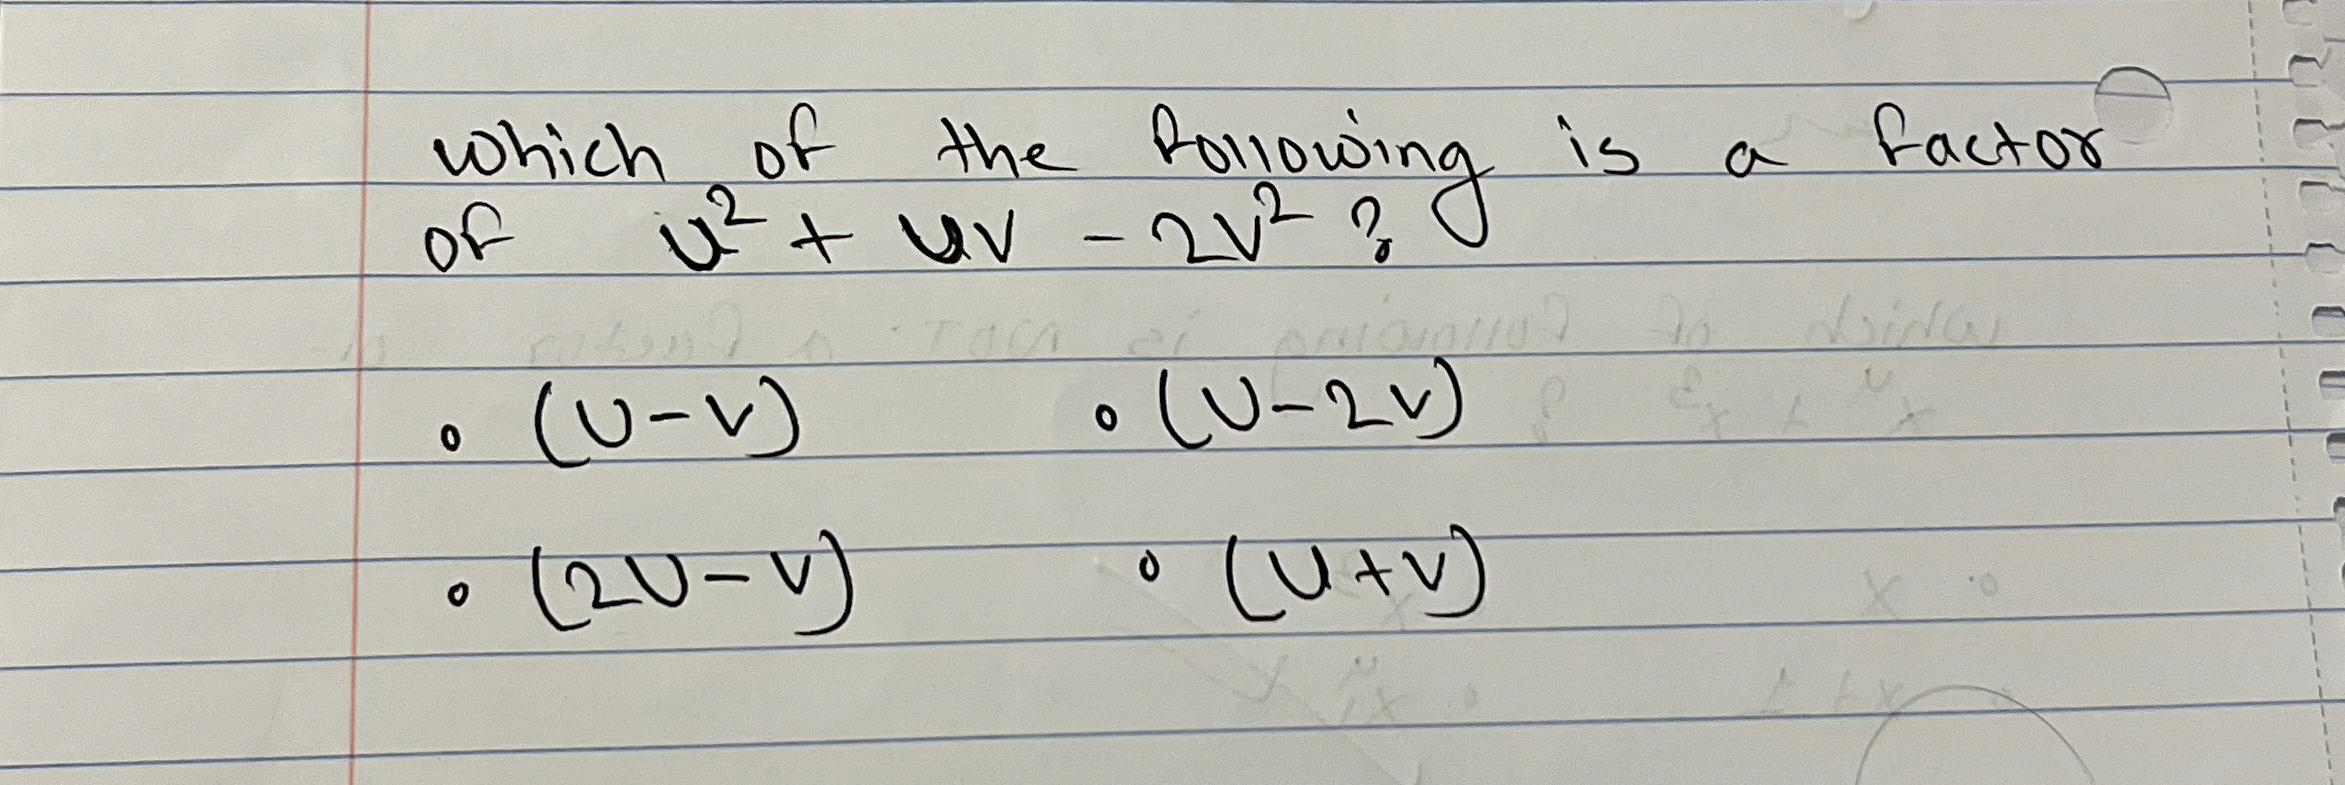 which of the following is a factor
of u² + uv - 2v² ?
∘ (u-v) ∘ (u-2v)
∘ (2u-v) ∘ (u+v)